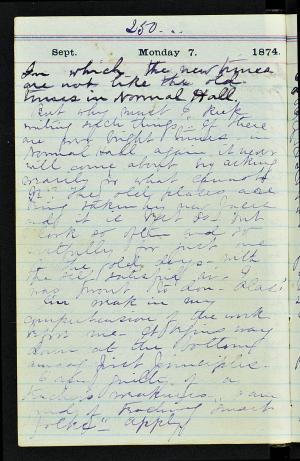 250...
Sept. Monday 7. 1874.
In which the new times
are not like the old
times in Normal Hall.
But why must I keep
writing such things? If there
are any bright times in
Normal Hall again it never
will come about by asking
for what cannot
be. The old places are
being taken by new faces
and it is but I
look so oft and so
wistfully for just one
of the old days with
the old satisfied air I
was wont to don. Alas!
I'm weak in my
comprehension of the work
before me. It begins way
down at the bottom
among first principles.
I am guilty of a
teacher's weakness, I am
fond of teaching smart
folks" apply